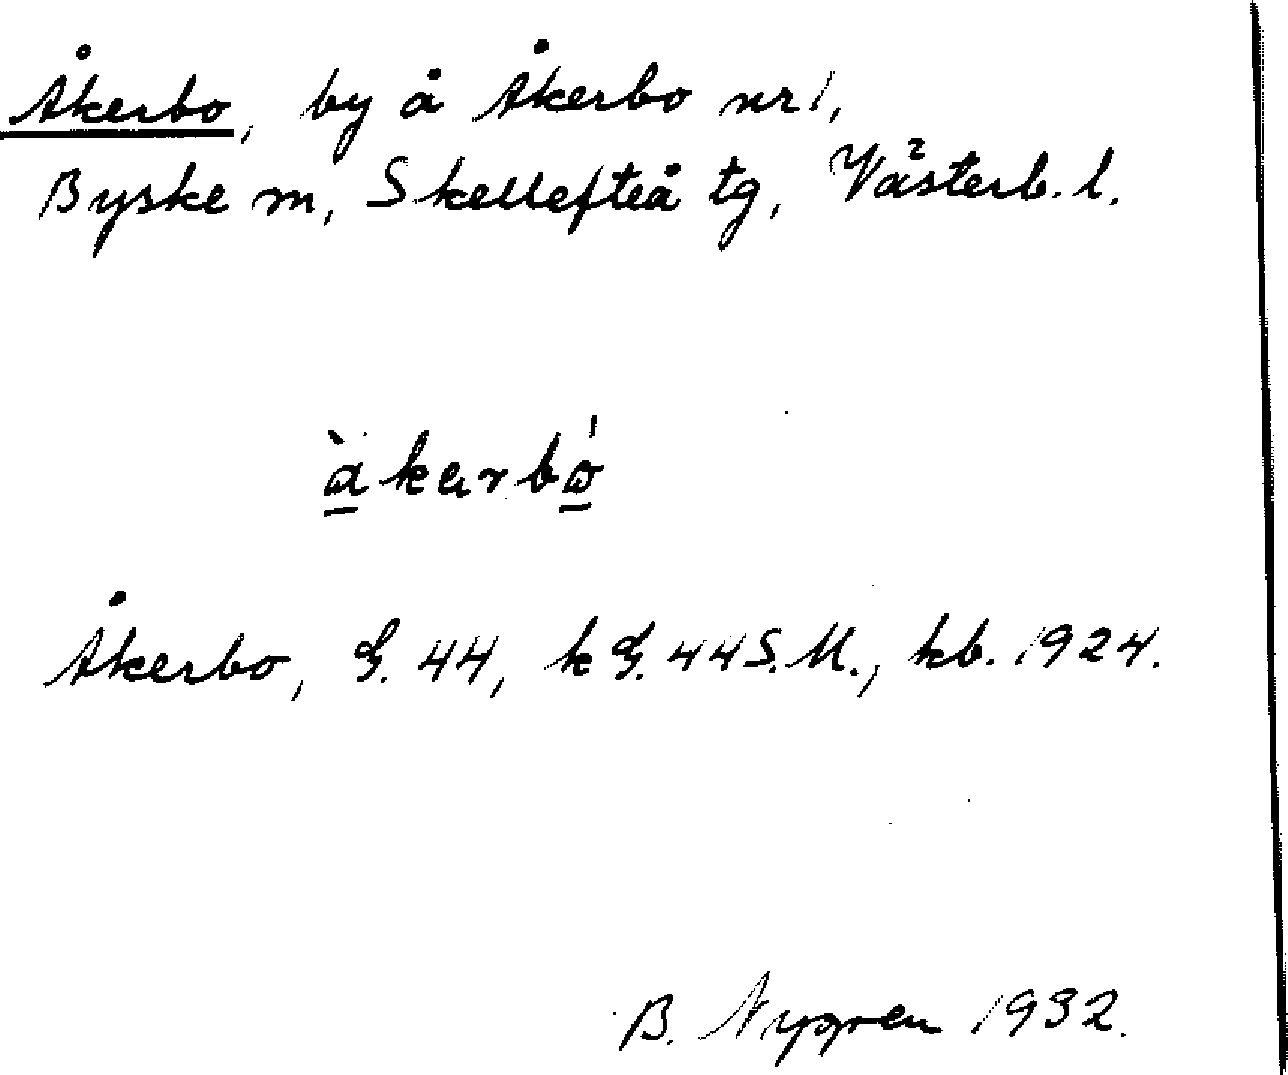 Åkerbo, by å Åkerbo nr 1,
Byske m, Skellefteå tg, Västerb. l.
àkarbó
Åkerbo, G. 44, k G. 44 S. M., kb. 1924.
B. Nygren 1932.